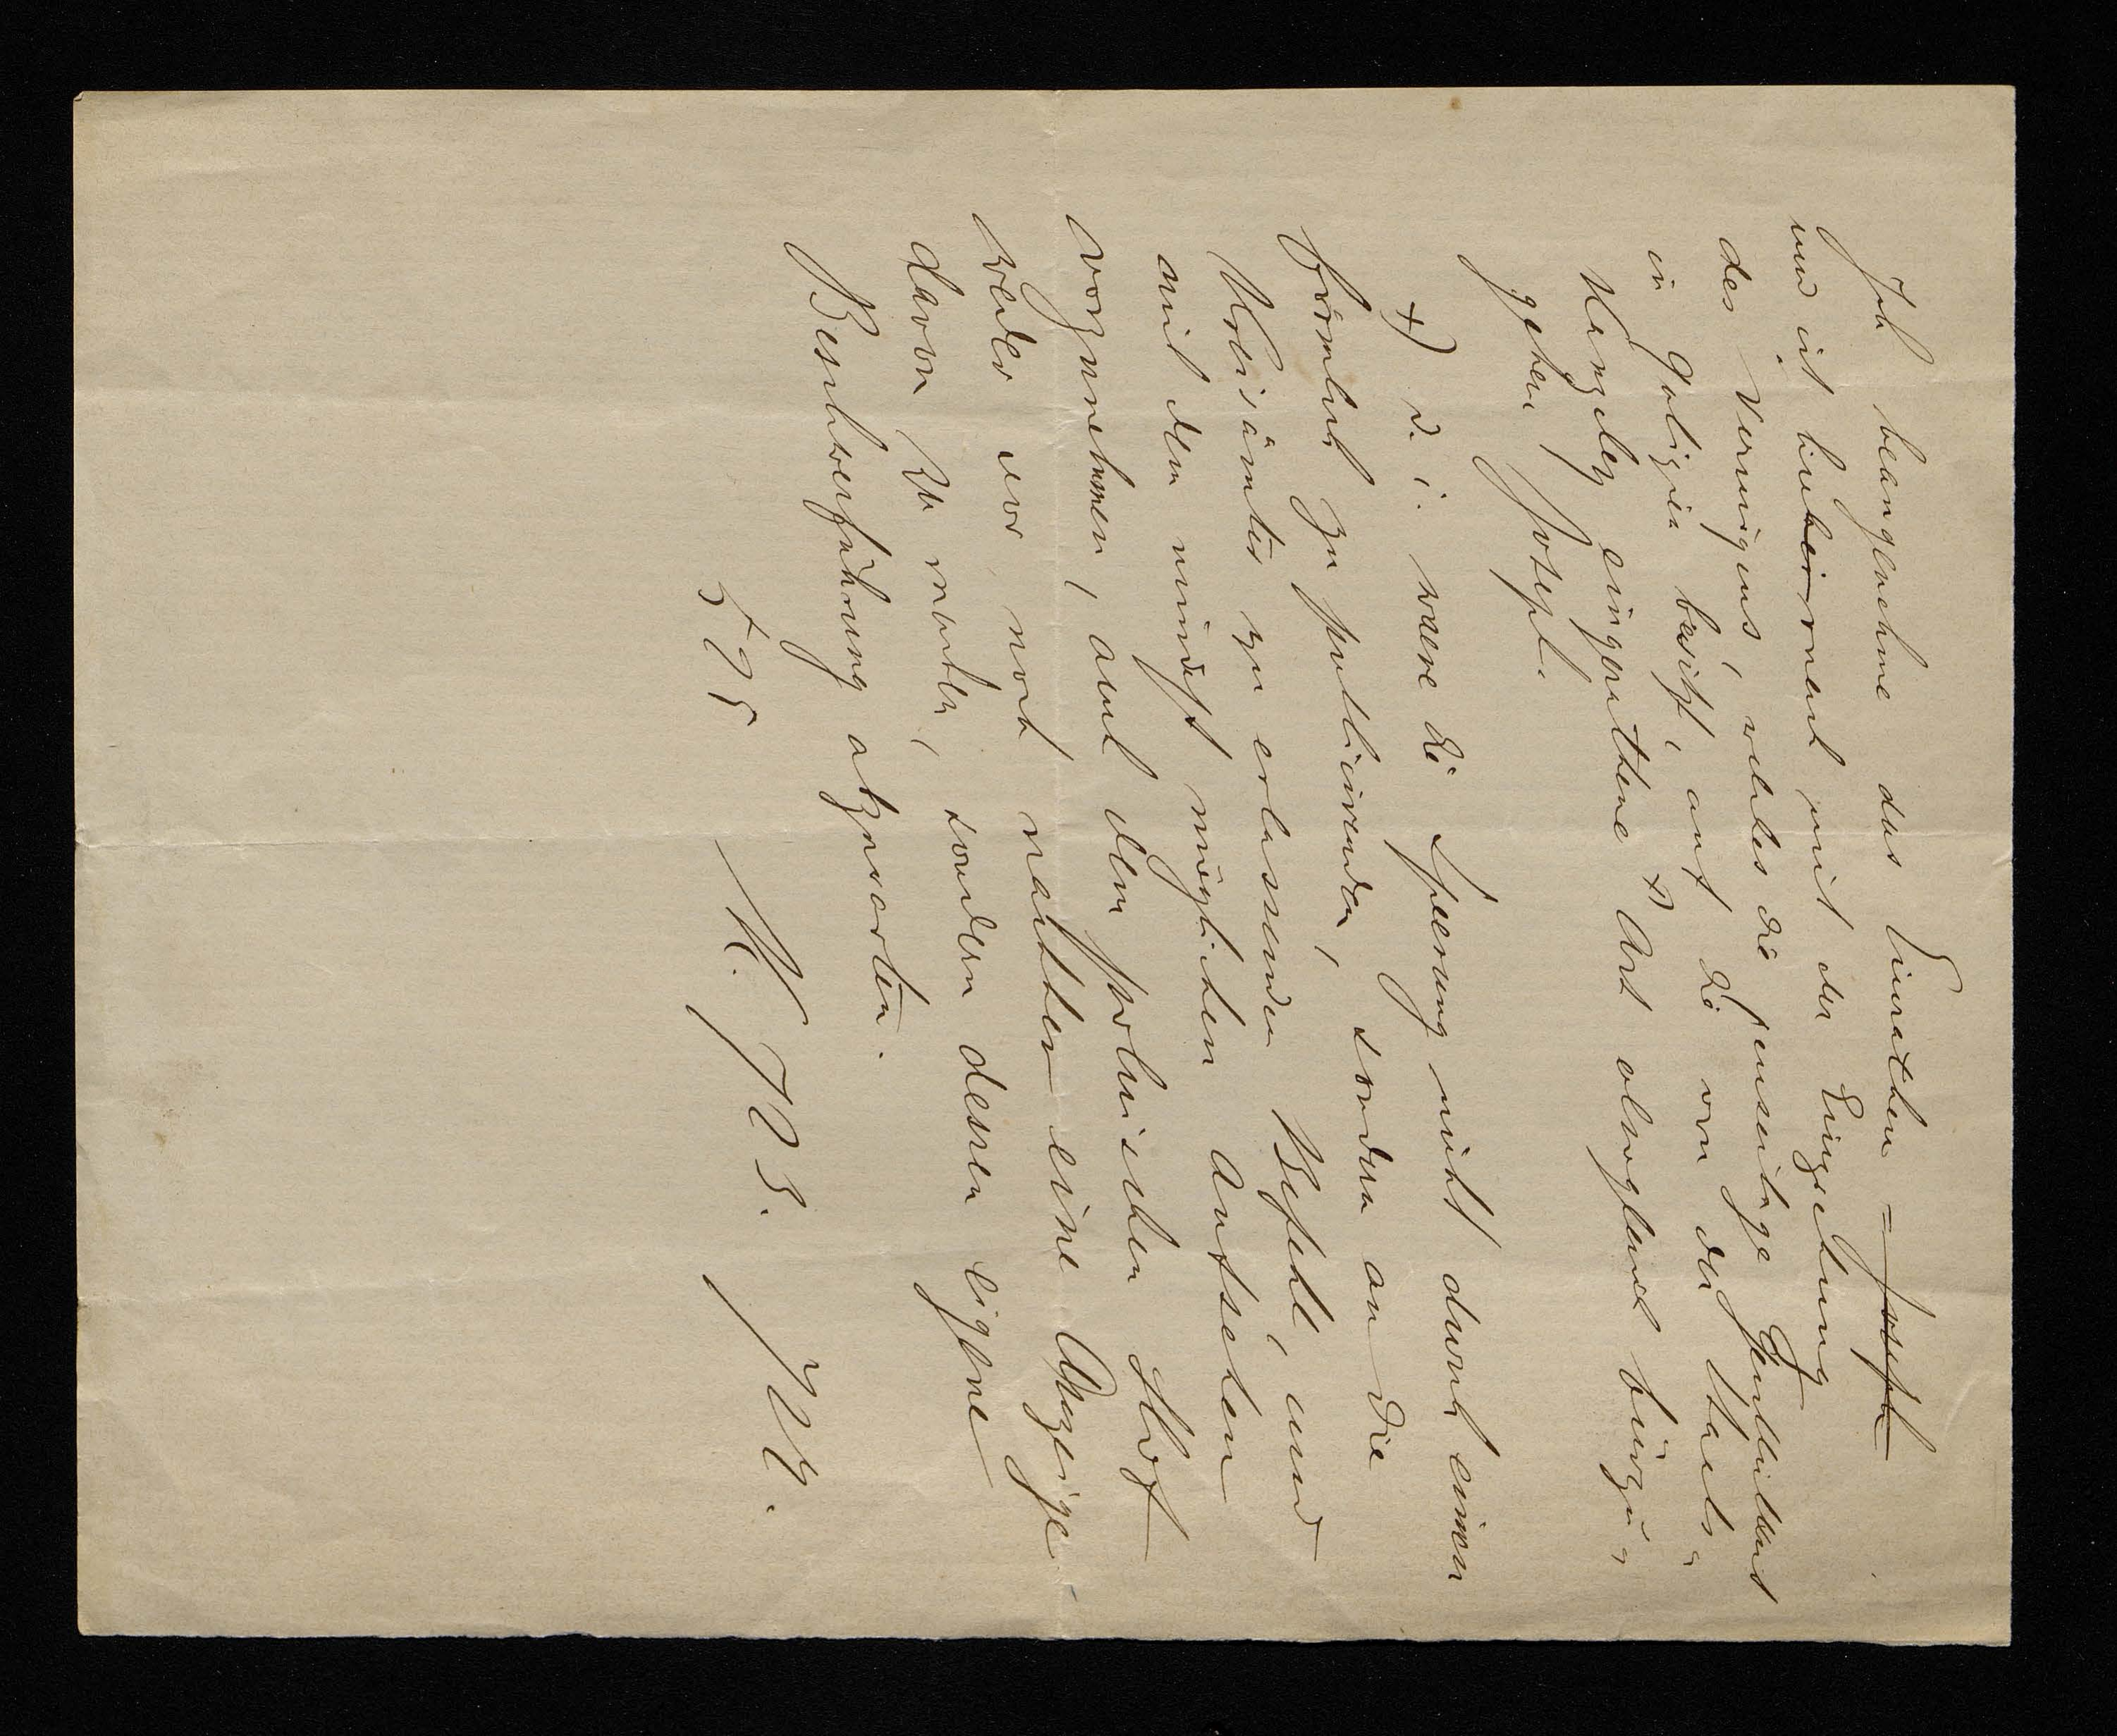 Ich beangenehme das Einrathen = Joseph
und ist hiebei nach mit der Einziehung
des Vermögens, welches die jenseitige Geistlichkeit
in Galizien besitzt, auf die von der Staats-
Kanzley eingerathene x) Art alsogleich fürzu-
gehen Joseph.
x) d. i. wäre die Sperrung nicht durch einen
förmlich zu publicirenden, sondern an die
Kreisämter zu erlassenden Befehl, und
mit dem mindest möglichen Aufsehen
vorzunehmen, auch dem polnischen Hof
weder vor, noch nachher eine Anzeige
davon zu machen, sondern dessen eigene
Beschwerführung abzuwarten.